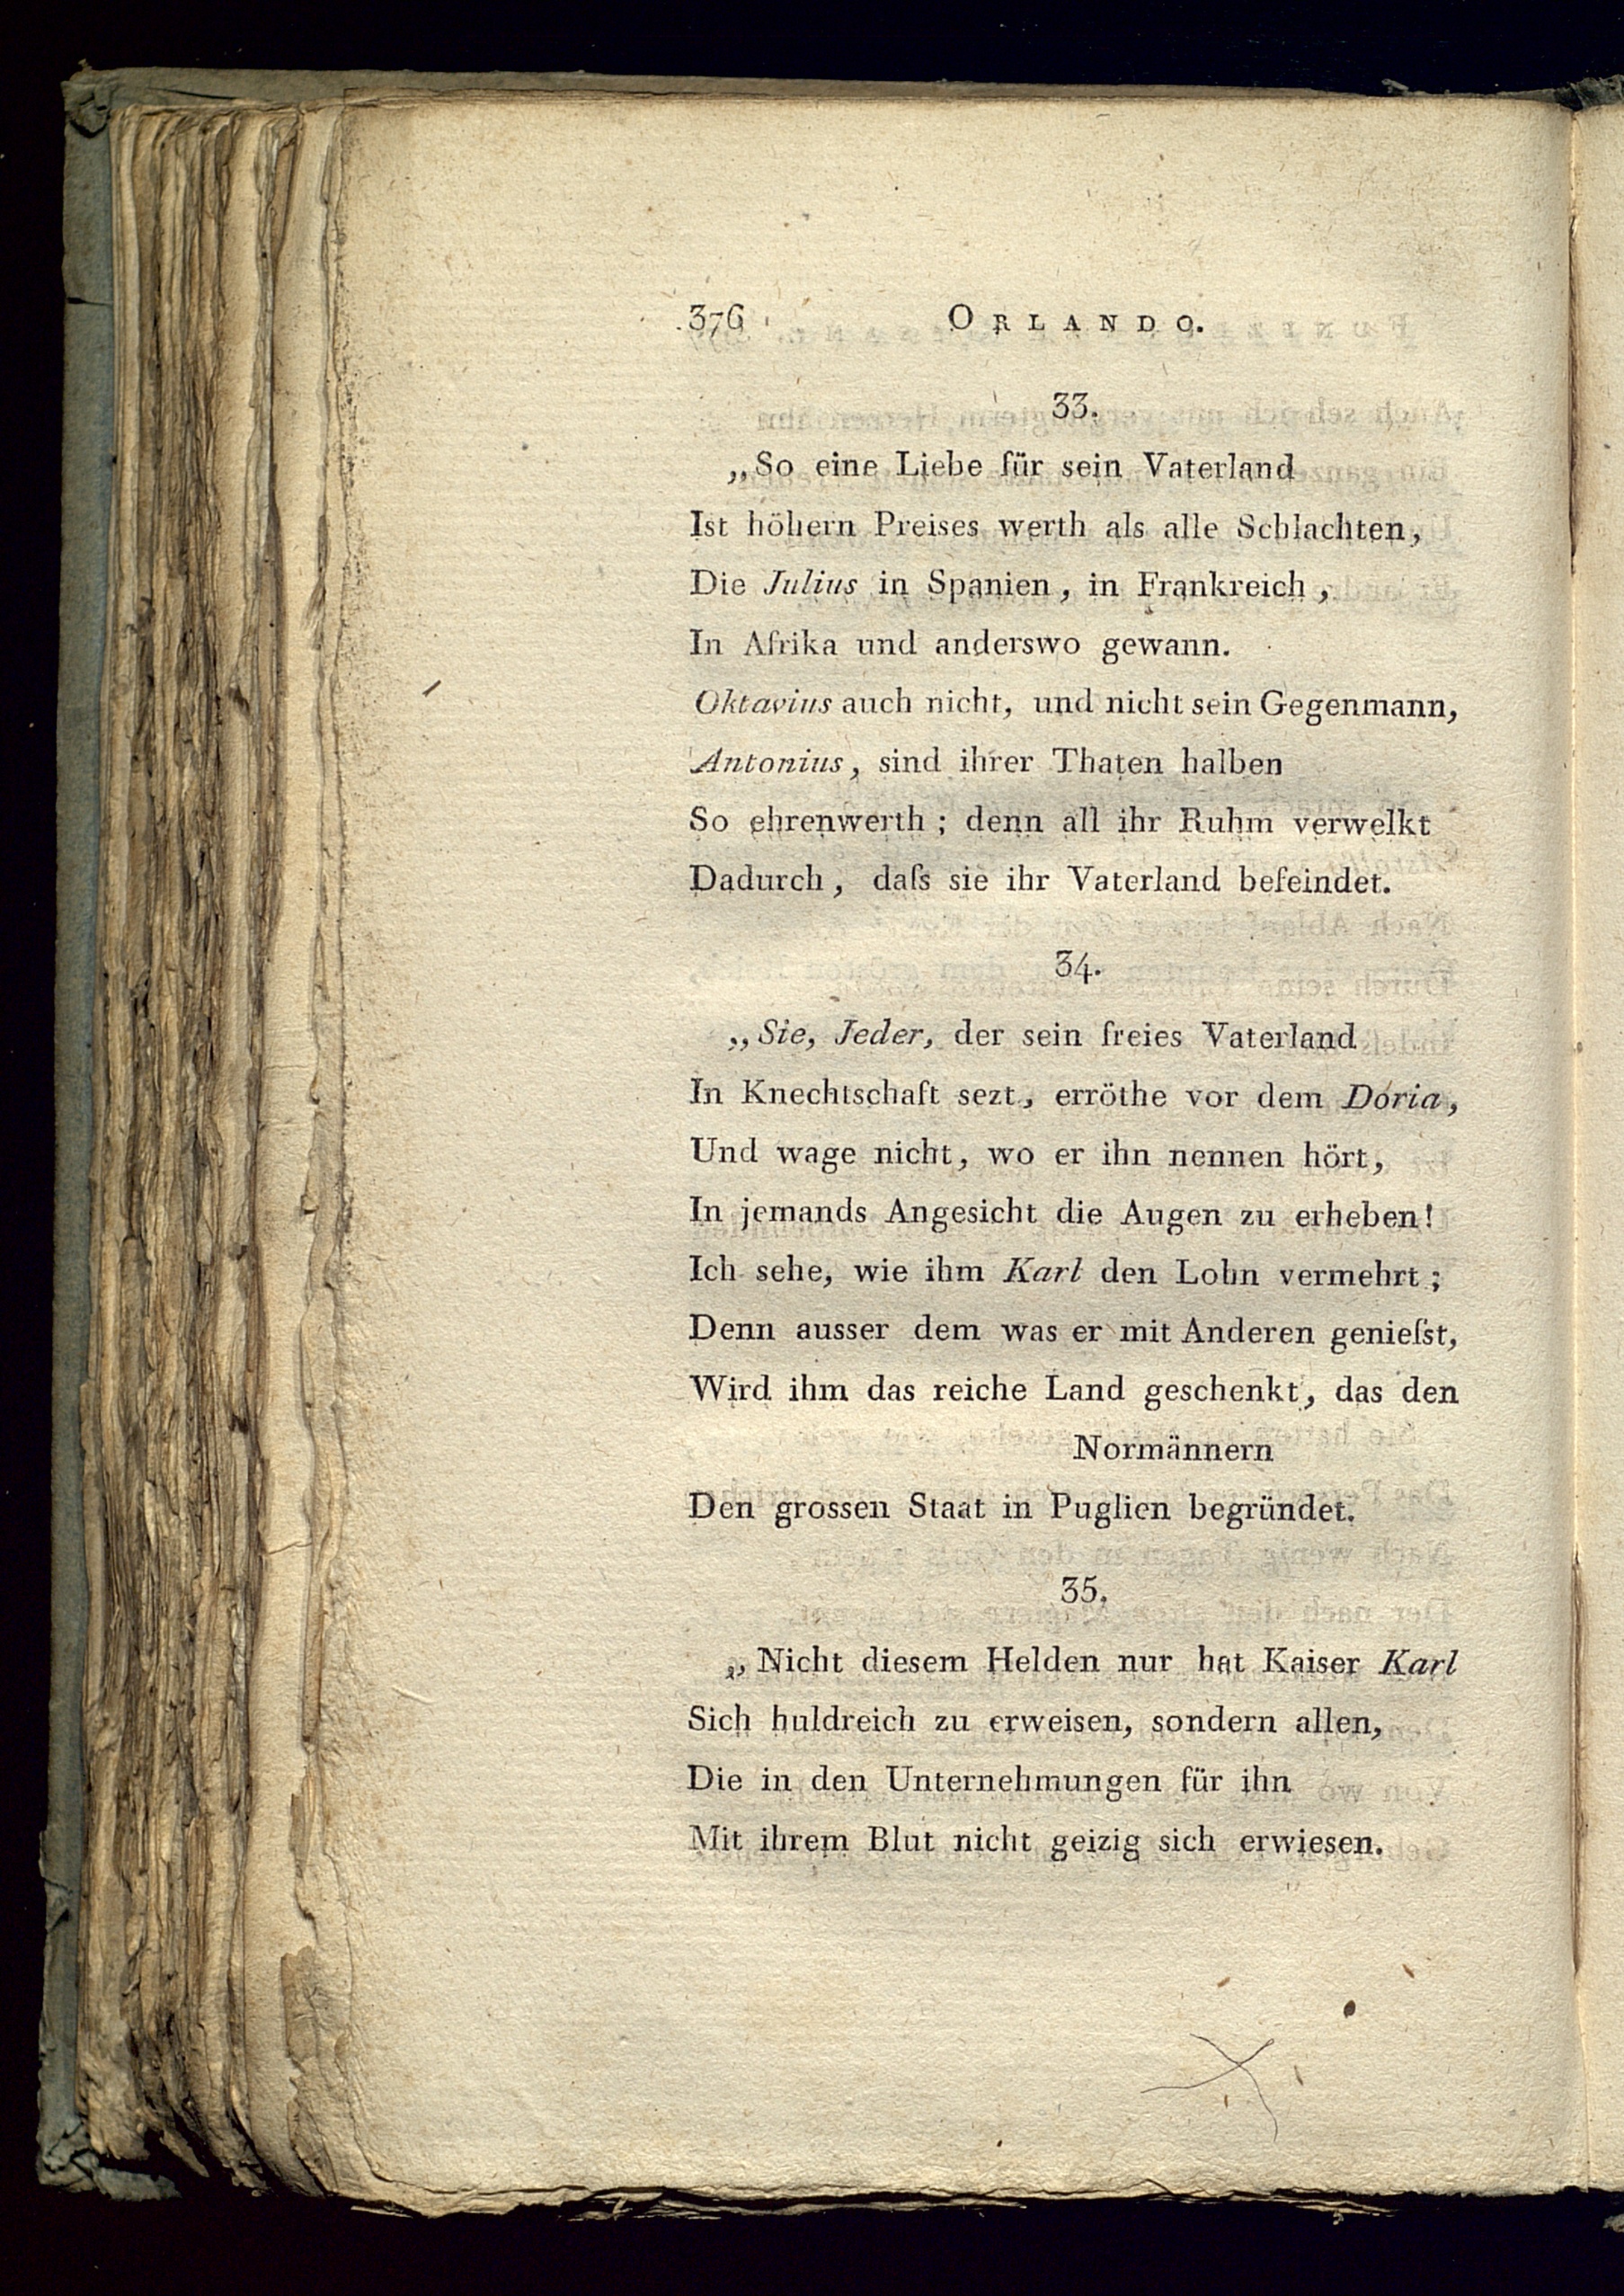 376 ORLANDO.
33.
„So eine Liebe für sein Vaterland
Ist höhern Preises werth als alle Schlachten,
Die Julius in Spanien, in Frankreich,
In Afrika und anderswo gewann.
Oktavius auch nicht, und nicht sein Gegenmann,
Antonius, sind ihrer Thaten halben
So ehrenwerth; denn all ihr Ruhm verwelkt
Dadurch, daſs sie ihr Vaterland befeindet.
34.
„Sie, Jeder, der sein freies Vaterland
In Knechtschaft sezt, erröthe vor dem Doria,
Und wage nicht, wo er ihn nennen hört,
In jemands Angesicht die Augen zu erheben!
Ich sehe, wie ihm Karl den Lohn vermehrt;
Denn ausser dem was er mit Anderen genieſst,
Wird ihm das reiche Land geschenkt, das den
Normännern
Den grossen Staat in Puglien begründet.
35.
„Nicht diesem Helden nur hat Kaiser Karl
Sich huldreich zu erweisen, sondern allen,
Die in den Unternehmungen für ihn
Mit ihrem Blut nicht geizig sich erwiesen.